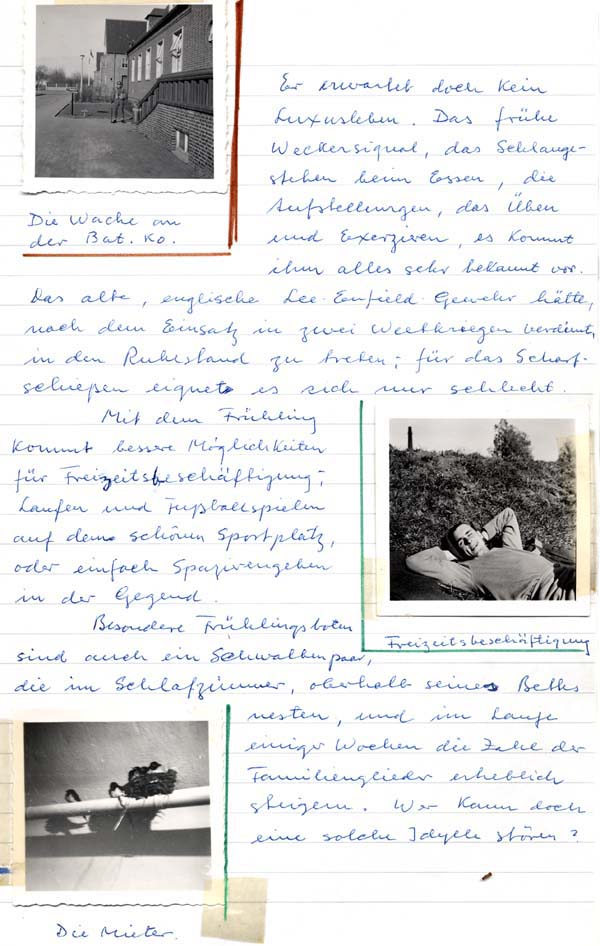 Er erwartet doch kein
Luxusleben. Das frühe
Weckersignal, das Schlange-
stehen beim Essen, die
Aufstellungen, das Üben
und Exerzieren, es kommt
ihm alles sehr bekannt vor.
Die Wache an
der Bat. Ko.
Das alte, englische Lee-Enfield-Gewehr hätte,
nach dem Einsatz in zwei Weltkriegen verdient,
in den Ruhestand zu treten; für das Scharf-
schießen eignet es sich nur schlecht.
Mit dem Frühling
kommt bessere Möglichkeiten
für Freizeitsbeschäftigung;
Laufen und Fußballspielen
auf dem schönen Sportplatz,
oder einfach Spazierengehen
in der Gegend.
Freizeitsbeschäftigung
Besondere Frühlingsboten
sind auch ein Schwalbenpaar,
die im Schlafzimmer, oberhalb seines Betts
nesten, und im Laufe
einiger Wochen die Zahl der
Familienglieder erheblich
steigern. Wer kann doch
eine solche Idylle stören?
Die Mieter.